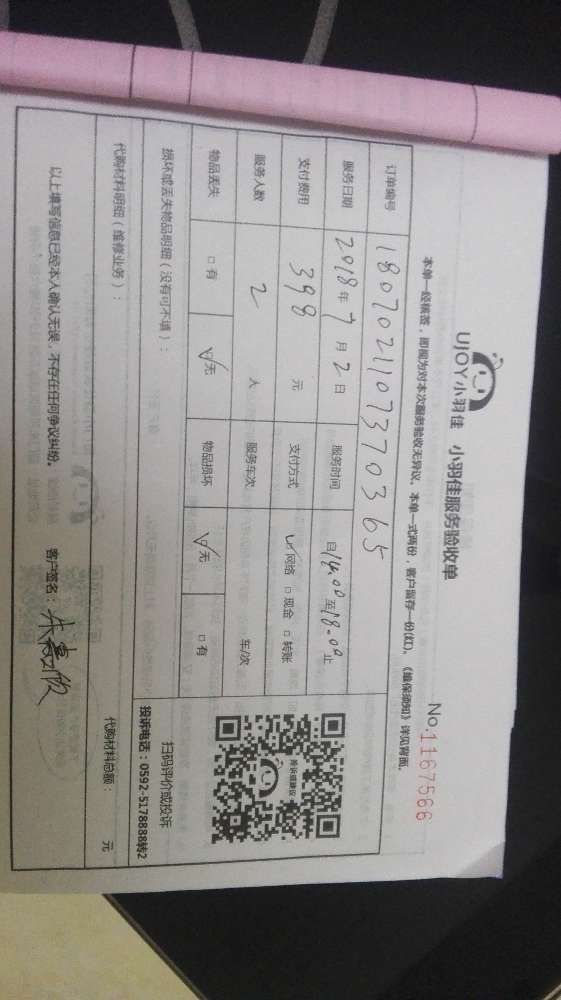 UJOY小羽佳 小羽佳服务验收单
No:1167566
本单一经核签，即视为对本次服务验收无异议。本单一式两份，客户留存一份(红)。《维保须知》详见背面。
订单编号 1807021107370365
服务日期 2018年7月2日 服务时间 自14.00至18.00止
支付费用 398 元 支付方式 ☑网络 □现金 □转账
服务人数 2 人 服务车次 车/次
物品丢失 □有 ☑无 物品损坏 ☑无 □有
损坏或丢失物品明细（没有可不填）：
投诉或建议
扫码评价或投诉
投诉电话：0592-5178888转2
代购材料明细（维修业务）： 代购材料总额： 元
以上填写信息已经本人确认无误，不存在任何争议纠纷。 客户签名：